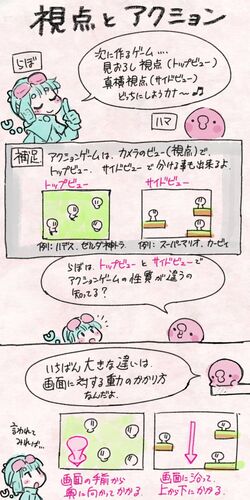 視点とアクション
らぼ
次に作るゲーム‥‥
見おろし視点（トップビュー）
真横視点（サイドビュー）
どっちにしようカナ〜♫
ハマ
補足
アクションゲームは、カメラのビュー（視点）で、
トップビュー、サイドビューで分ける事も出来るよ
トップビュー
サイドビュー
例：ハデス、ゼルダ神トラ
例：スーパーマリオ、カービィ
らぼは、トップビューとサイドビューで
アクションゲームの性質が違うの
知ってる？
いちばん大きな違いは、
画面に対する重力のかかり方
なんだよ。
言われて
みれば…
画面の手前から
奥に向かってかかる
画面に沿って、
上から下にかかる